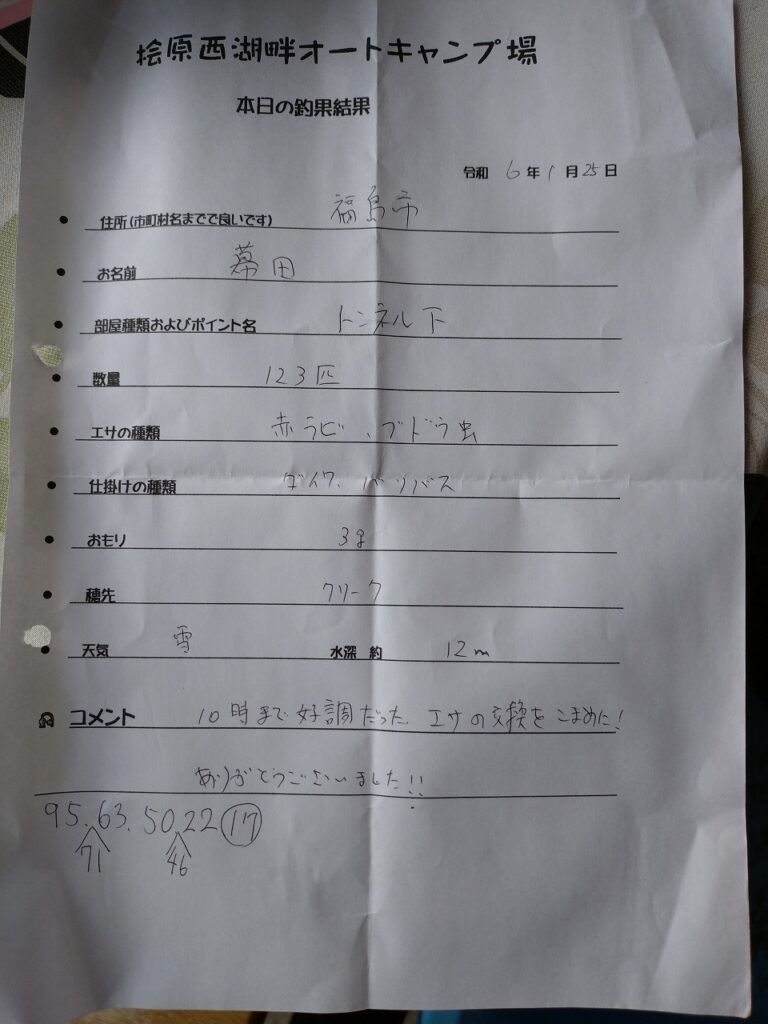 桧原西湖畔オートキャンプ場
本日の釣果結果
令和 6年 1月25日
住所(市町村名までで良いです) 福島市
お名前 幕田
部屋種類およびポイント名 トンネル下
数量 123匹
エサの種類 赤ラビ、ブドウ虫
仕掛けの種類 ダイワ、バリバス
おもり 3g
穂先 クリーク
天気 雪 水深 約 12m
コメント 10時まで好調だった。エサの交換をこまめに!
ありがとうございました!!
95.63.50.22 17
71 46